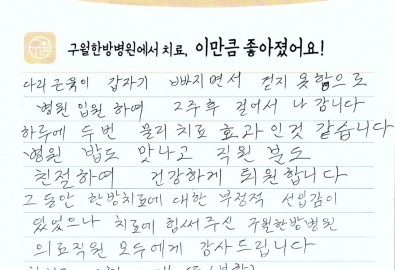 구월한방병원에서 치료, 이만큼 좋아졌어요!
다리 근육이 갑자기 빠지면서 걷지 못함으로
병원 입원 하여 2주후 걸어서 나갑니다
하루에 두번 물리치료 효과인것 같습니다
병원 밥도 맛나고 직원분도
친절하여 건강하게 퇴원합니다
그동안 한방치료에 대한 부정적 선입감이
있었으나 치료에 힘써주신 구월한방병원
의료직원 모두에게 감사드립니다